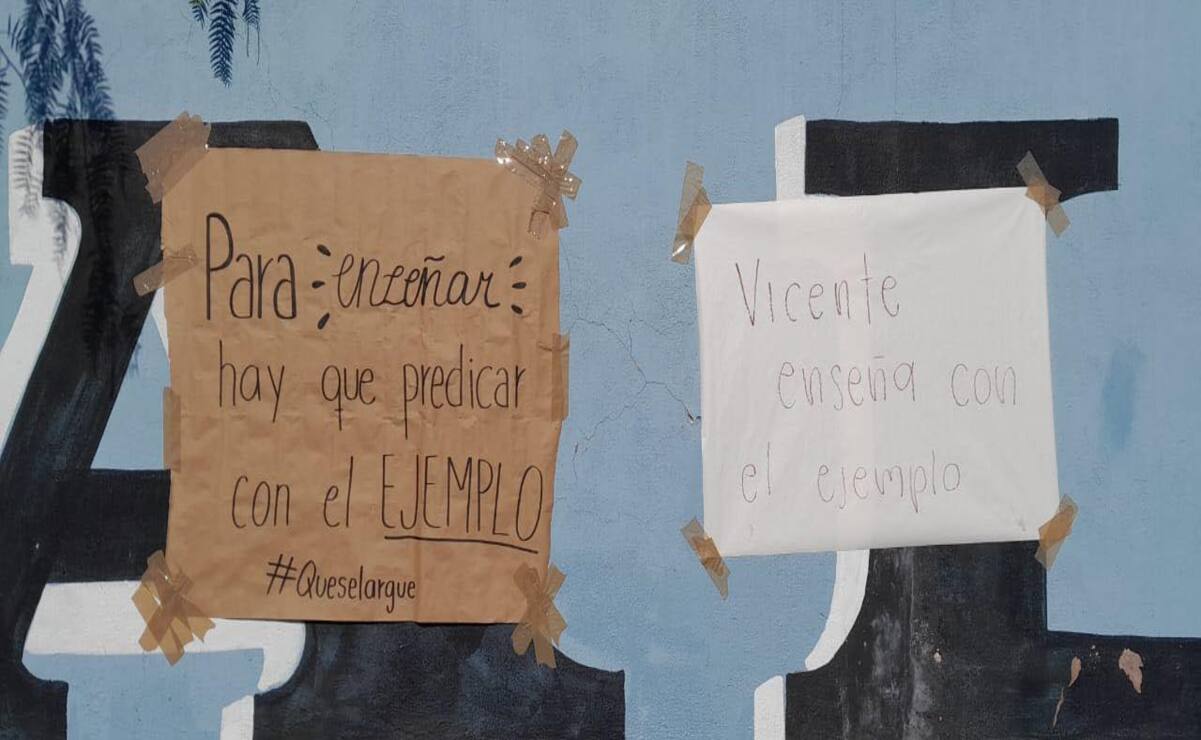 Para enseñar
hay que predicar
con el EJEMPLO
#Queselargue
Vicente
enseña con
el ejemplo